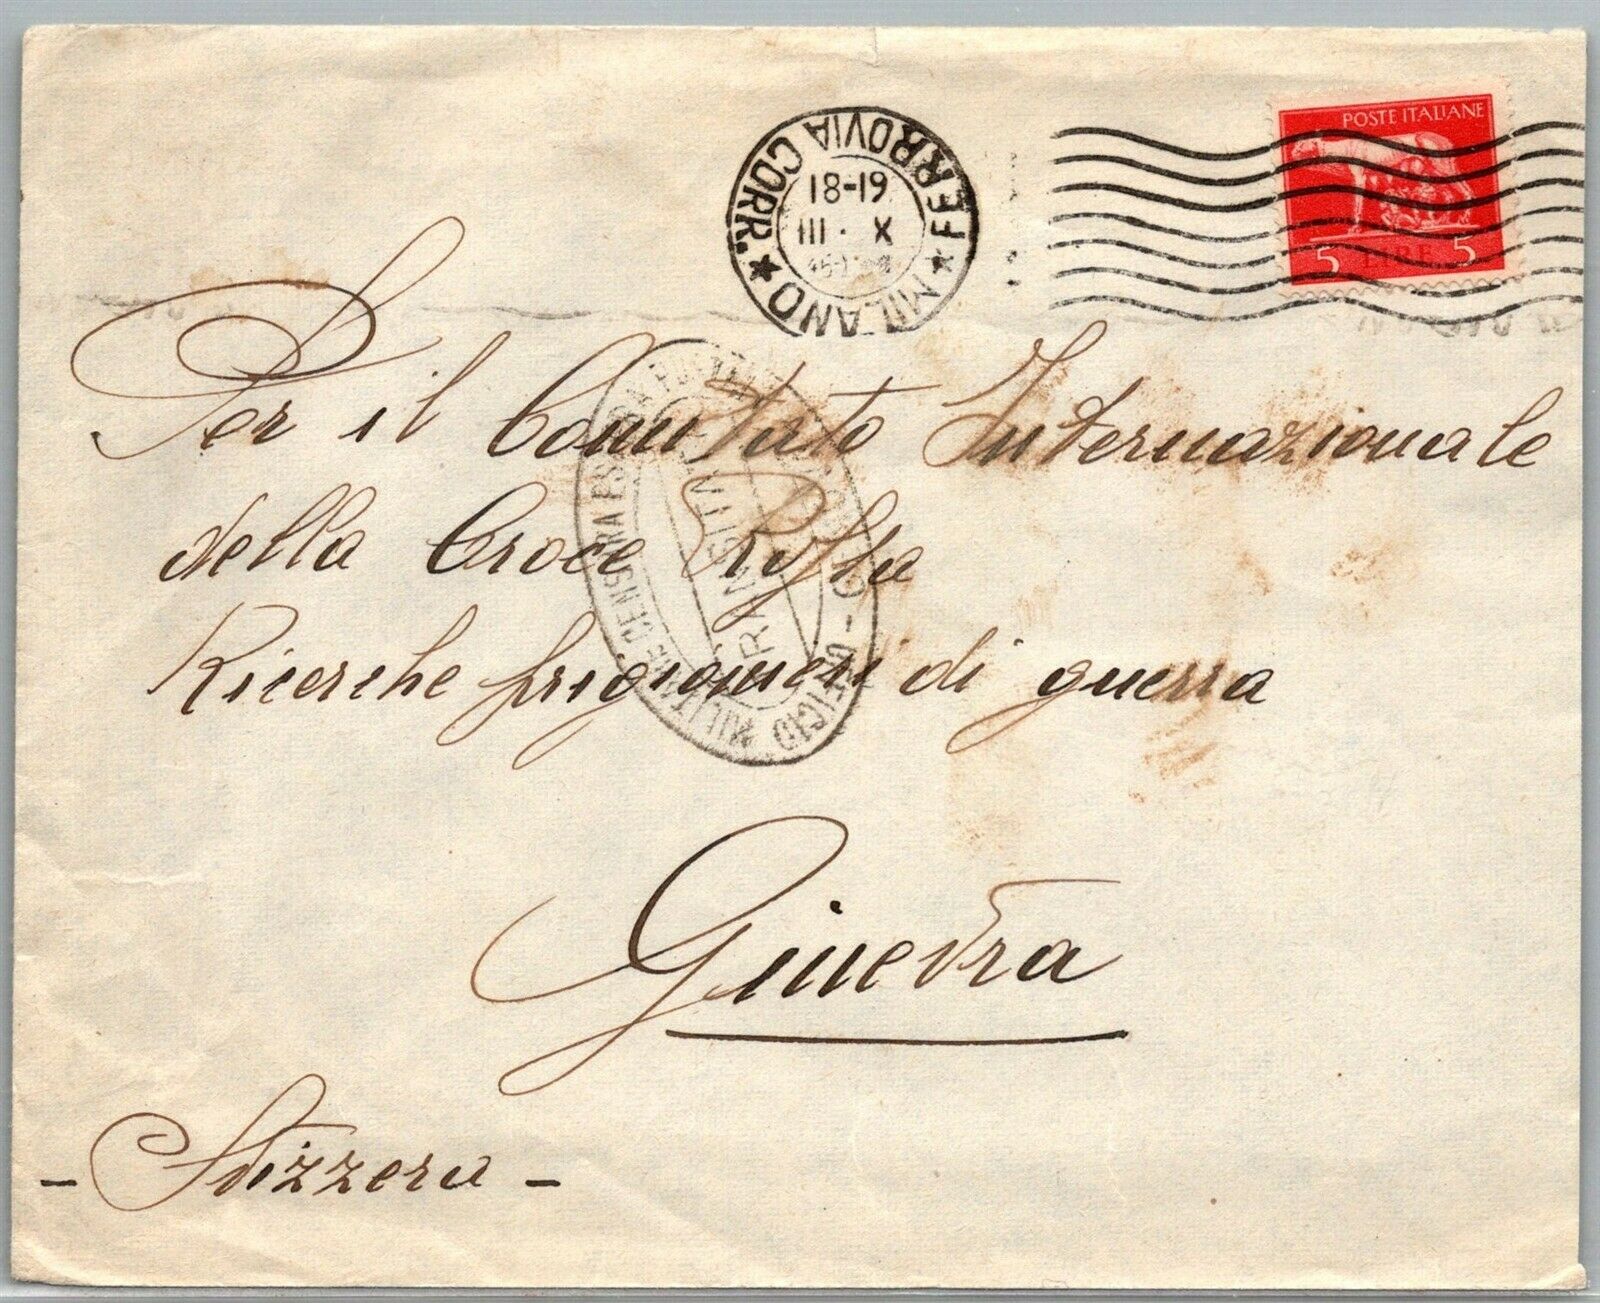 POSTE ITALIANE
5 LIRE 5
MILANO * FERROVIA CORR. *
18-19
III · X
Per il Comitato Internazionale
della Croce Rossa
Ricerche prigionieri di guerra
Ginevra
- Svizzera -
UFFICIO MILITARE CENSURA
TRANSITA